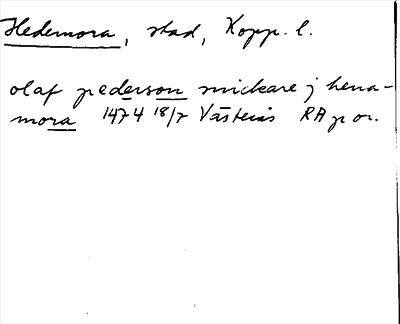 Hedemora, stad, Kopp. l.
olaf pederson smickare j hena-
mora 1474 18/7 Västerås RA p or.